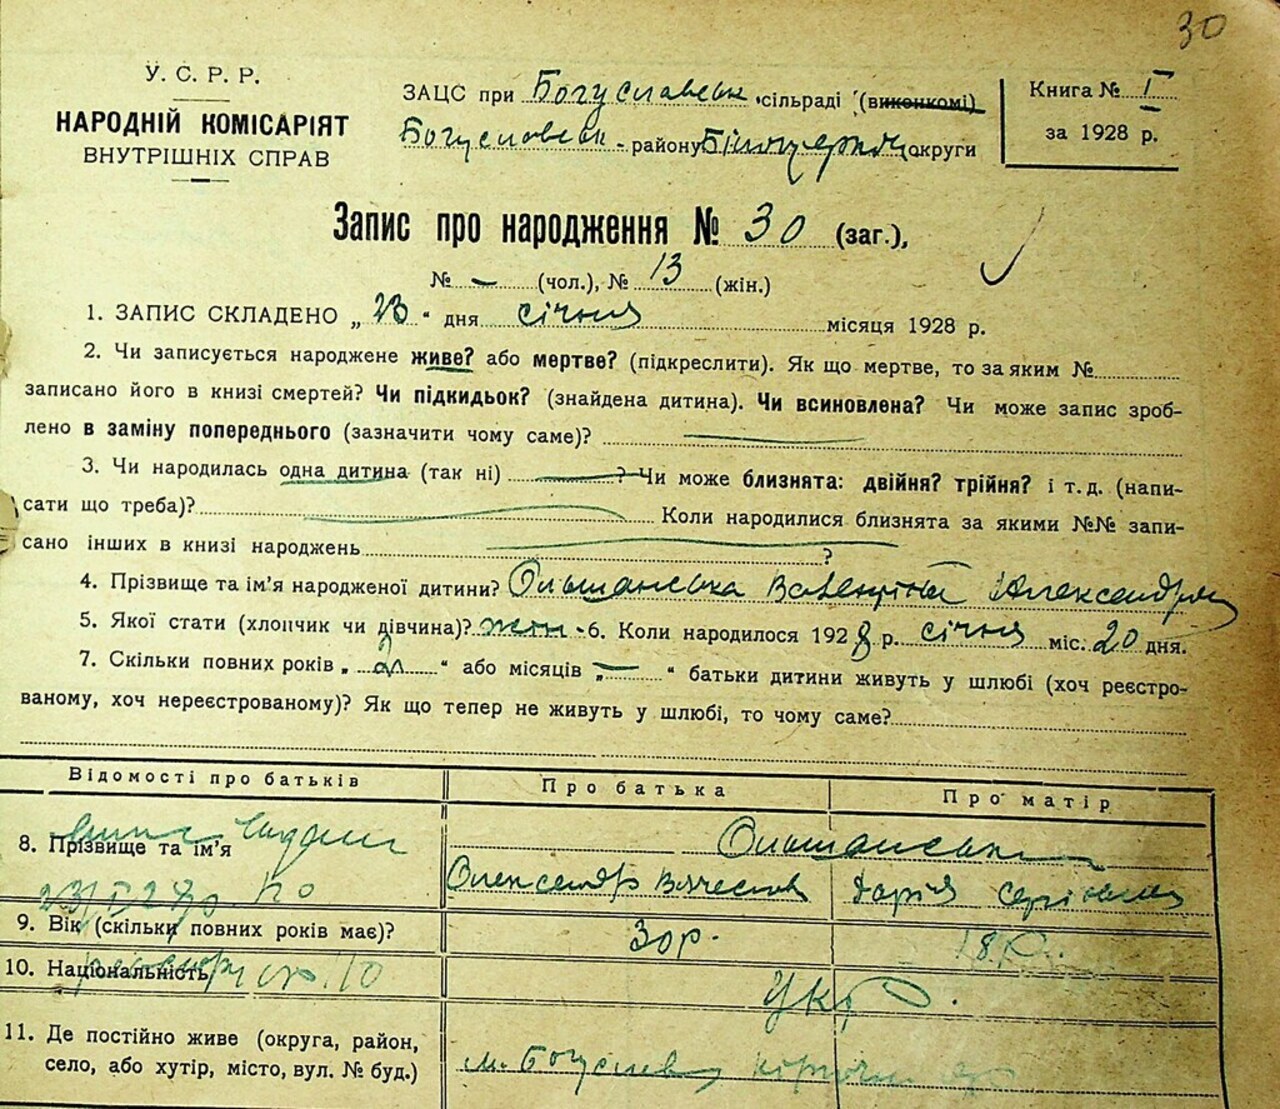 30
У. С. Р. Р.
НАРОДНІЙ КОМІСАРІЯТ
ВНУТРІШНІХ СПРАВ
ЗАЦС при Богуславськ. сільраді (виконкомі)
Богуславськ. району Білоцерків округи
Книга № I
за 1928 р.
Запис про народження № 30 (заг.),
№ – (чол.), № 13 (жін.)
1. ЗАПИС СКЛАДЕНО „ 23 “ дня січня місяця 1928 р.
2. Чи записується народжене живе? або мертве? (підкреслити). Як що мертве, то за яким №
записано його в книзі смертей? Чи підкидьок? (знайдена дитина). Чи всиновлена? Чи може запис зроб-
лено в заміну попереднього (зазначити чому саме)?
3. Чи народилась одна дитина (так ні) ? Чи може близнята: двійня? трійня? і т. д. (напи-
сати що треба)? Коли народилися близнята за якими №№ запи-
сано інших в книзі народжень ?
4. Прізвище та ім'я народженої дитини? Ольшанська Валентіна Александров
5. Якої стати (хлопчик чи дівчина)? жін - 6. Коли народилося 1928 р. січня міс. 20 дня.
7. Скільки повних років „ “ або місяців „ – “ батьки дитини живуть у шлюбі (хоч реєстро-
ваному, хоч нереєстрованому)? Як що тепер не живуть у шлюбі, то чому саме?
Відомості про батьків
Про батька
Про матір
8. Прізвище та ім'я
Ольшанськи
Олександр Вячеслав
Дарія Сергіївна
23/I 28 р. №
9. Вік (скільки повних років має)?
30 р.
18 р.
10. Національність
Укр.
11. Де постійно живе (округа, район,
село, або хутір, місто, вул. № буд.)
м. Богуслав